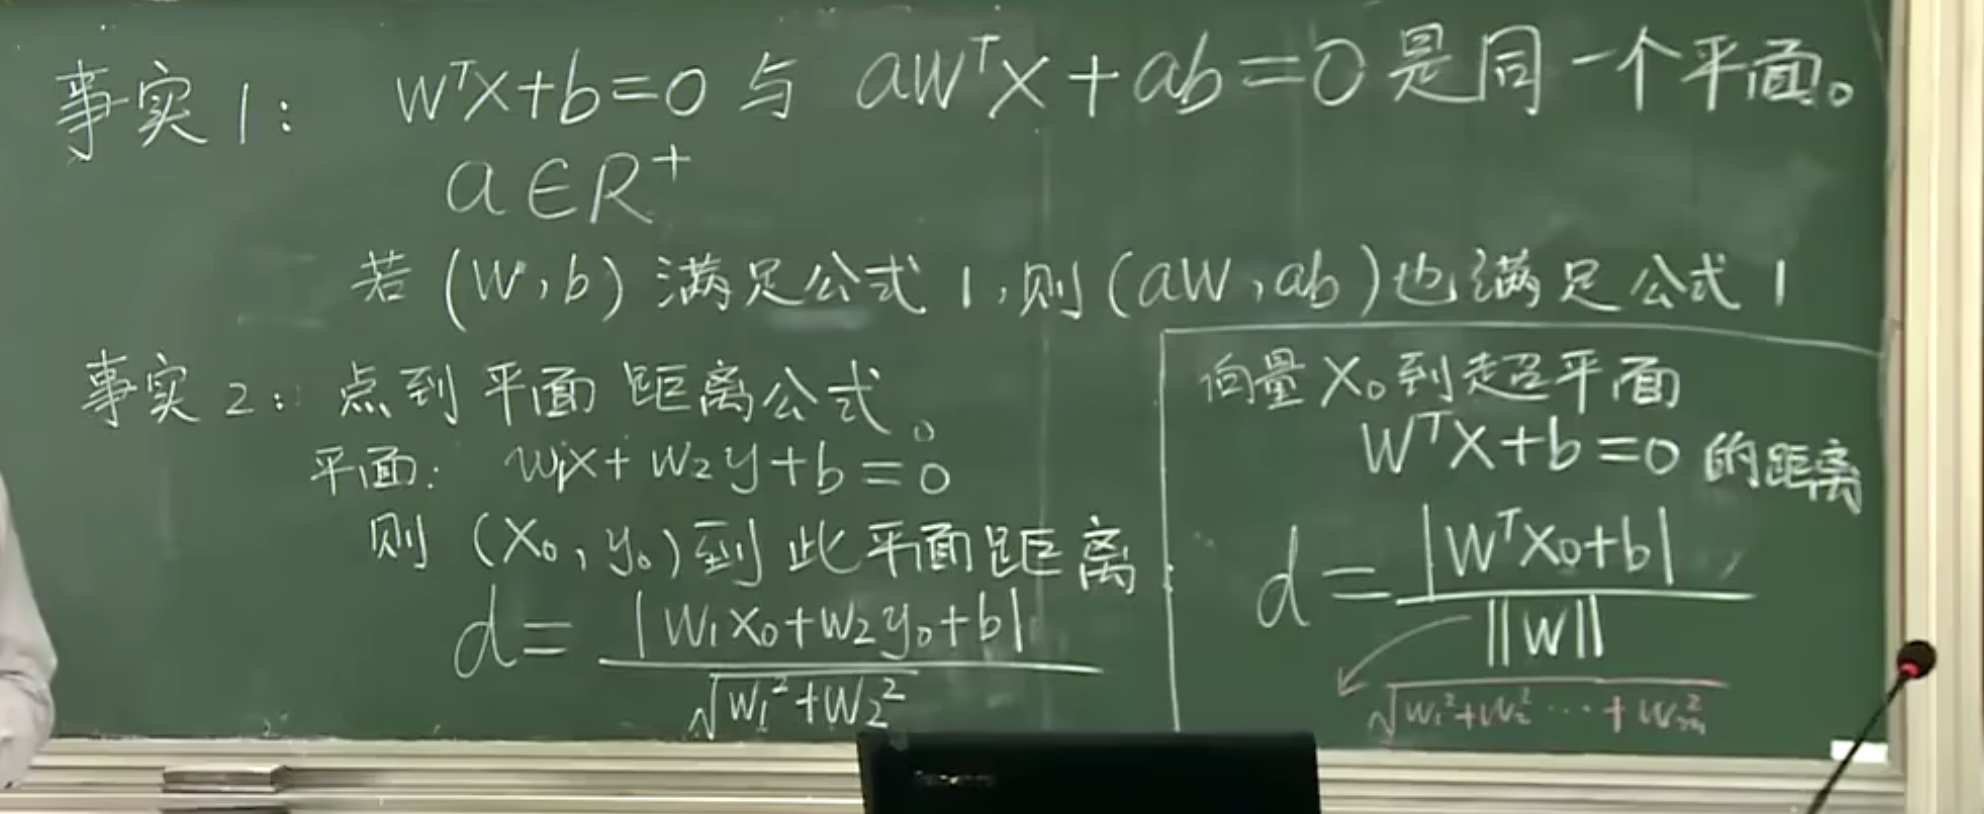 事实1: WᵀX+b=0 与 aWᵀX+ab=0是同一个平面。
a∈R⁺
若(W,b)满足公式1,则(aW,ab)也满足公式1
事实2: 点到平面距离公式。
平面: w₁x+w₂y+b=0
则 (x₀,y₀)到此平面距离
d=|w₁x₀+w₂y₀+b|
√w₁²+w₂²
向量X₀到超平面
WᵀX+b=0的距离
d=|WᵀX₀+b|
‖W‖
√w₁²+w₂²⋯+wₘ²